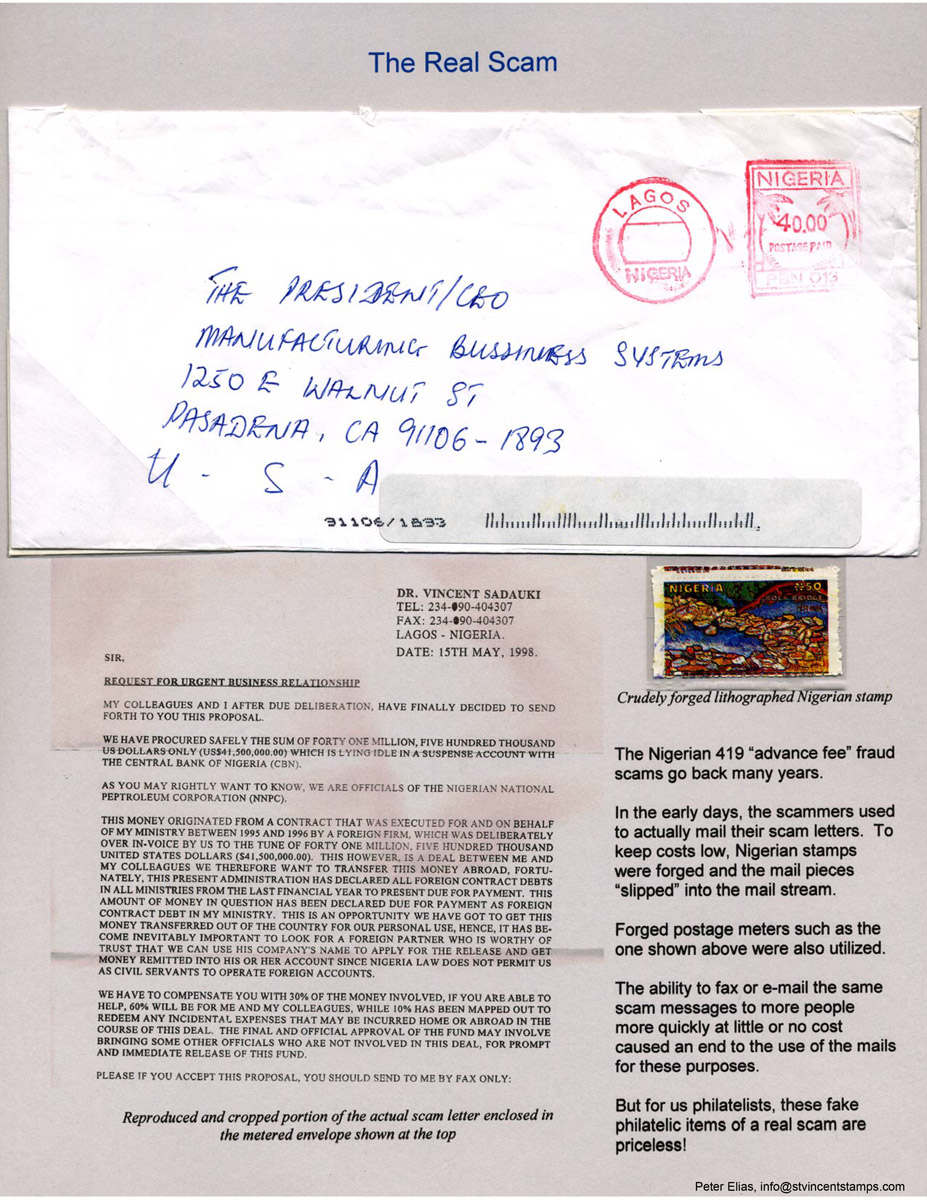 The Real Scam
LAGOS
NIGERIA
NIGERIA
40.00
POSTAGE PAID
PBN 013
THE PRESIDENT/CEO
MANUFACTURING BUSSINESS SYSTEMS
1250 E WALNUT ST
PASADENA, CA 91106-1893
U - S - A
91106/1893
DR. VINCENT SADAUKI
TEL: 234-090-404307
FAX: 234-090-404307
LAGOS - NIGERIA.
DATE: 15TH MAY, 1998.
SIR,
REQUEST FOR URGENT BUSINESS RELATIONSHIP
MY COLLEAGUES AND I AFTER DUE DELIBERATION, HAVE FINALLY DECIDED TO SEND
FORTH TO YOU THIS PROPOSAL.
WE HAVE PROCURED SAFELY THE SUM OF FORTY ONE MILLION, FIVE HUNDRED THOUSAND
US DOLLARS ONLY (US$41,500,000.00) WHICH IS LYING IDLE IN A SUSPENSE ACCOUNT WITH
THE CENTRAL BANK OF NIGERIA (CBN).
AS YOU MAY RIGHTLY WANT TO KNOW, WE ARE OFFICIALS OF THE NIGERIAN NATIONAL
PEPTROLEUM CORPORATION (NNPC).
THIS MONEY ORIGINATED FROM A CONTRACT THAT WAS EXECUTED FOR AND ON BEHALF
OF MY MINISTRY BETWEEN 1995 AND 1996 BY A FOREIGN FIRM, WHICH WAS DELIBERATELY
OVER IN-VOICE BY US TO THE TUNE OF FORTY ONE MILLION, FIVE HUNDRED THOUSAND
UNITED STATES DOLLARS ($41,500,000.00). THIS HOWEVER, IS A DEAL BETWEEN ME AND
MY COLLEAGUES WE THEREFORE WANT TO TRANSFER THIS MONEY ABROAD, FORTU-
NATELY, THIS PRESENT ADMINISTRATION HAS DECLARED ALL FOREIGN CONTRACT DEBTS
IN ALL MINISTRIES FROM THE LAST FINANCIAL YEAR TO PRESENT DUE FOR PAYMENT. THIS
AMOUNT OF MONEY IN QUESTION HAS BEEN DECLARED DUE FOR PAYMENT AS FOREIGN
CONTRACT DEBT IN MY MINISTRY. THIS IS AN OPPORTUNITY WE HAVE GOT TO GET THIS
MONEY TRANSFERRED OUT OF THE COUNTRY FOR OUR PERSONAL USE, HENCE, IT HAS BE-
COME INEVITABLY IMPORTANT TO LOOK FOR A FOREIGN PARTNER WHO IS WORTHY OF
TRUST THAT WE CAN USE HIS COMPANY'S NAME TO APPLY FOR THE RELEASE AND GET
MONEY REMITTED INTO HIS OR HER ACCOUNT SINCE NIGERIA LAW DOES NOT PERMIT US
AS CIVIL SERVANTS TO OPERATE FOREIGN ACCOUNTS.
WE HAVE TO COMPENSATE YOU WITH 30% OF THE MONEY INVOLVED, IF YOU ARE ABLE TO
HELP, 60% WILL BE FOR ME AND MY COLLEAGUES, WHILE 10% HAS BEEN MAPPED OUT TO
REDEEM ANY INCIDENTAL EXPENSES THAT MAY BE INCURRED HOME OR ABROAD IN THE
COURSE OF THIS DEAL. THE FINAL AND OFFICIAL APPROVAL OF THE FUND MAY INVOLVE
BRINGING SOME OTHER OFFICIALS WHO ARE NOT INVOLVED IN THIS DEAL, FOR PROMPT
AND IMMEDIATE RELEASE OF THIS FUND.
PLEASE IF YOU ACCEPT THIS PROPOSAL, YOU SHOULD SEND TO ME BY FAX ONLY:
Reproduced and cropped portion of the actual scam letter enclosed in
the metered envelope shown at the top
NIGERIA
N50
Crudely forged lithographed Nigerian stamp
The Nigerian 419 “advance fee” fraud
scams go back many years.
In the early days, the scammers used
to actually mail their scam letters. To
keep costs low, Nigerian stamps
were forged and the mail pieces
“slipped” into the mail stream.
Forged postage meters such as the
one shown above were also utilized.
The ability to fax or e-mail the same
scam messages to more people
more quickly at little or no cost
caused an end to the use of the mails
for these purposes.
But for us philatelists, these fake
philatelic items of a real scam are
priceless!
Peter Elias, info@stvincentstamps.com